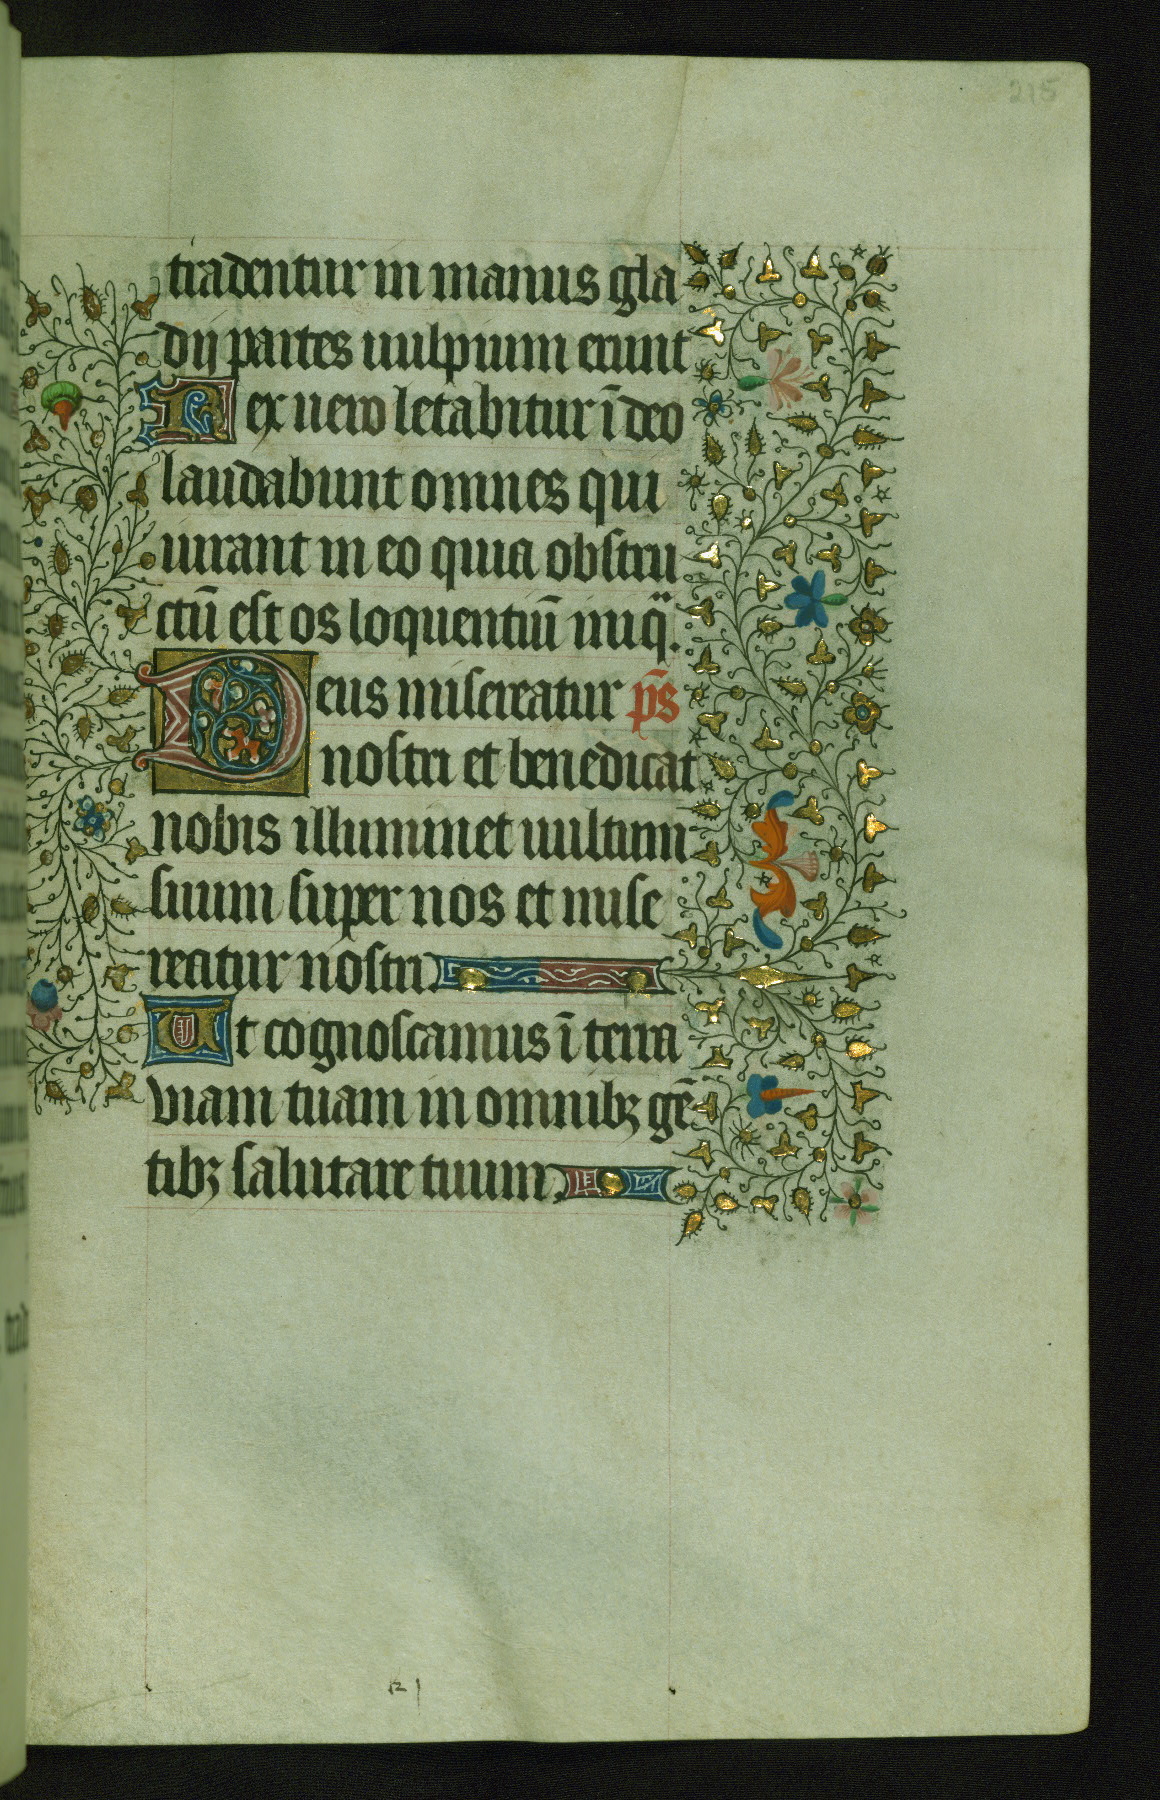 215
tradentur in manus gla
dij partes uulpium erunt
Rex uero letabitur ī deo
laudabunt omnes qui
iurant in eo quia obstru
ctū est os loquentiū iniq̄.
Deus misereatur p̄s
nostri et benedicat
nobis illuminet uultum
suum super nos et mise
reatur nostri
Ut cognoscamus ī terra
viam tuam in omnibꝫ gē
tibꝫ salutare tuum.